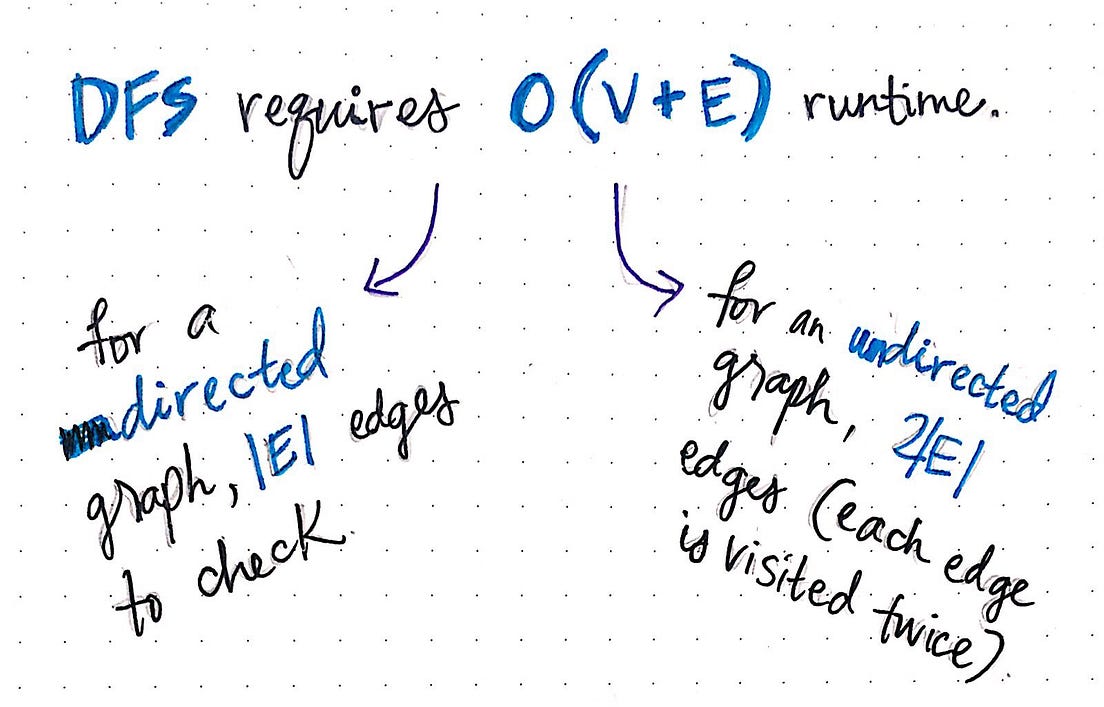 DFS requires O(V+E) runtime.
for a
directed
graph, |E| edges
to check.
for an undirected
graph, 2|E|
edges (each edge
is visited twice).